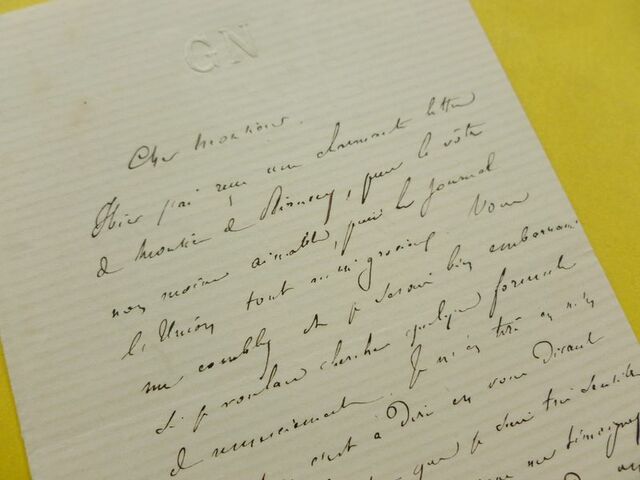 GN
Cher Monsieur.
Hier j'ai reçu une charmante lettre
de Monsieur de Riancey, puis la vôtre
non moins aimable, puis le journal
l'Union tout
me comblez et je serais bien embarrassé
si je voulais chercher quelque formule
de remerciement. Je m'en tire en
c'est à dire en vous disant
que je suis très sensible